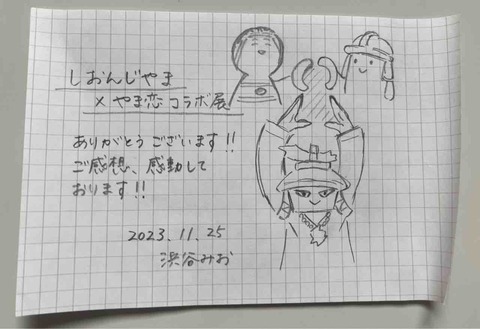 しおんじやま
×やま恋コラボ展
ありがとうございます!!
ご感想、感動して
おります!!
2023.11.25
浜谷みお